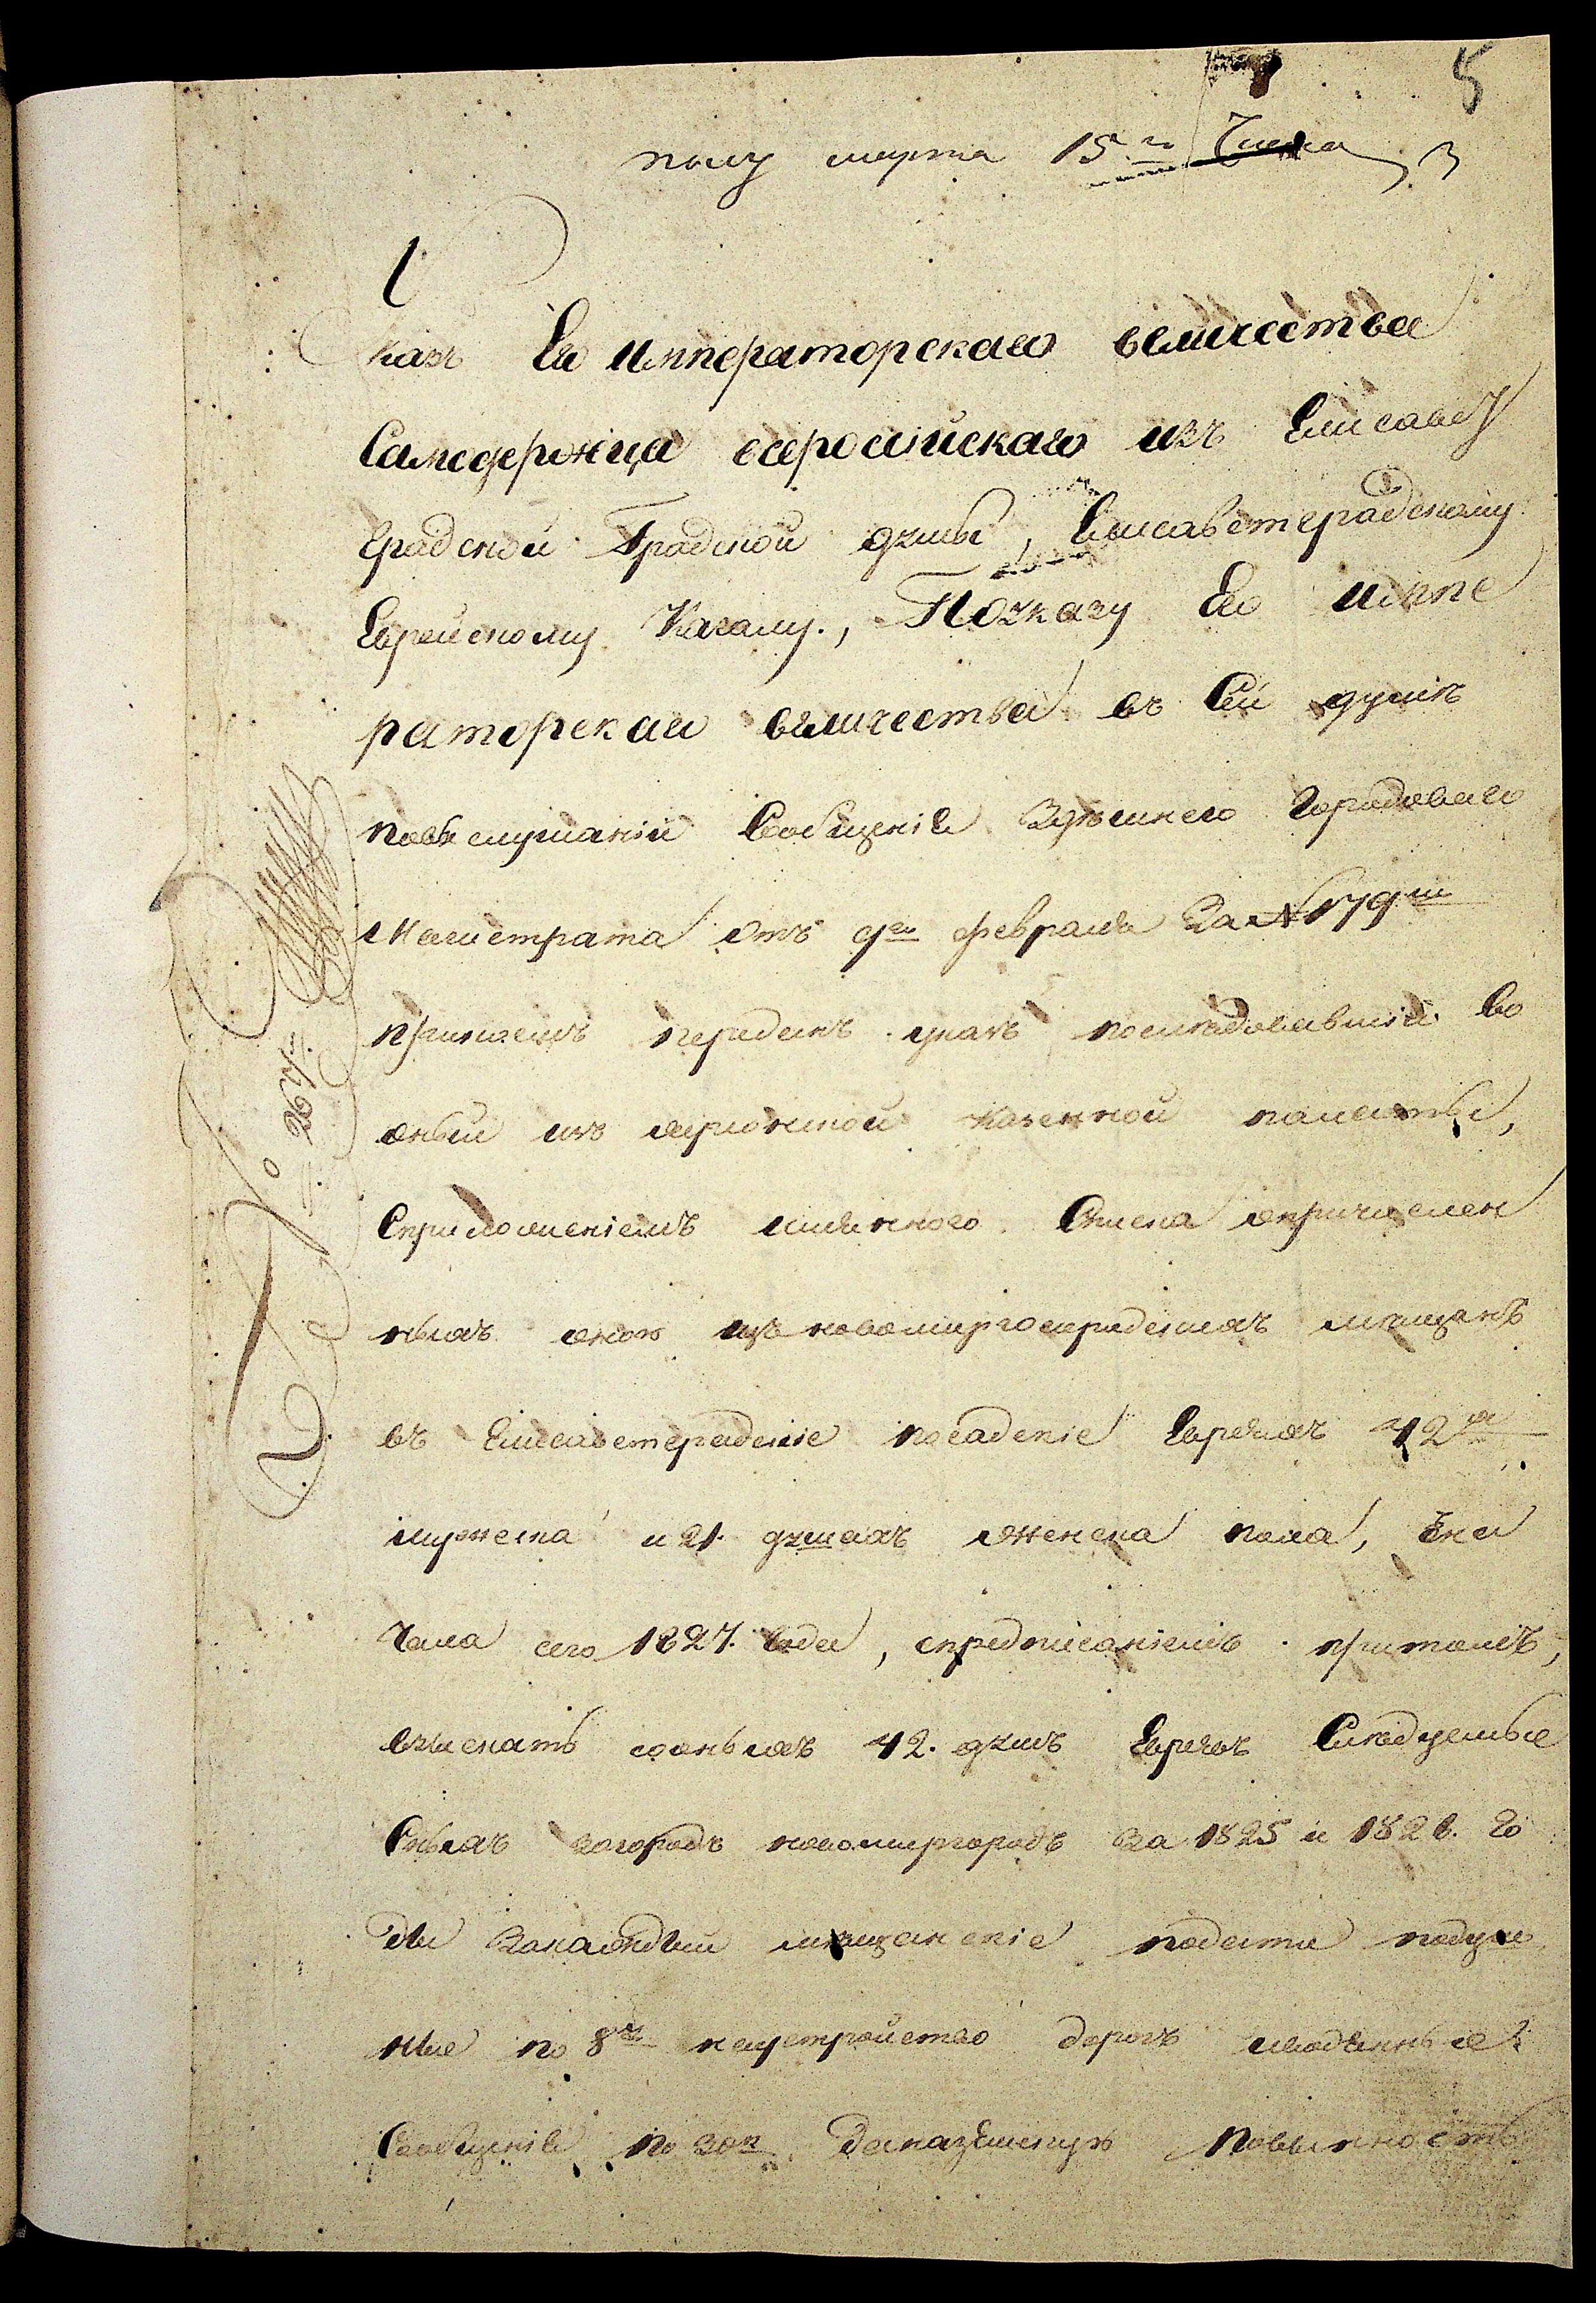 5
полу марта 15го Числа
3
Указъ Его Императорскаго величества
Самодержца всеросийскаго изъ Елисавет
градской Градской думы, Елисаветградскому
Еврейскому Кагалу., По указу Его Импе
раторскаго величества въ Сей думѣ
повыслушании Сообщения Здешнего Городоваго
Магистрата отъ 9го февраля За №179м
причемъ переданъ указъ последовавший во
оный изъ херсонской казенной палаты,
Сприложениемъ имяннаго Списка опричислен
ныхъ оною изъ новомиргородскихъ мещанъ
въ Елисаветградские посадские Евреяхъ 42х
мужеска и 21. душахъ женска пола, Сна
чала сего 1827. года, спредписаниемъ притомъ,
взыскать соныхъ 42. душъ Евреевъ Следуемые
Снихъ загородъ новомиргородъ За 1825 и 1826. го
ды Закаждый мещанские подати подуш
ные по 8 р. наустройство дорогъ иводянные
Сообщения по 30 к. Заназемскую повинность
№ 267.